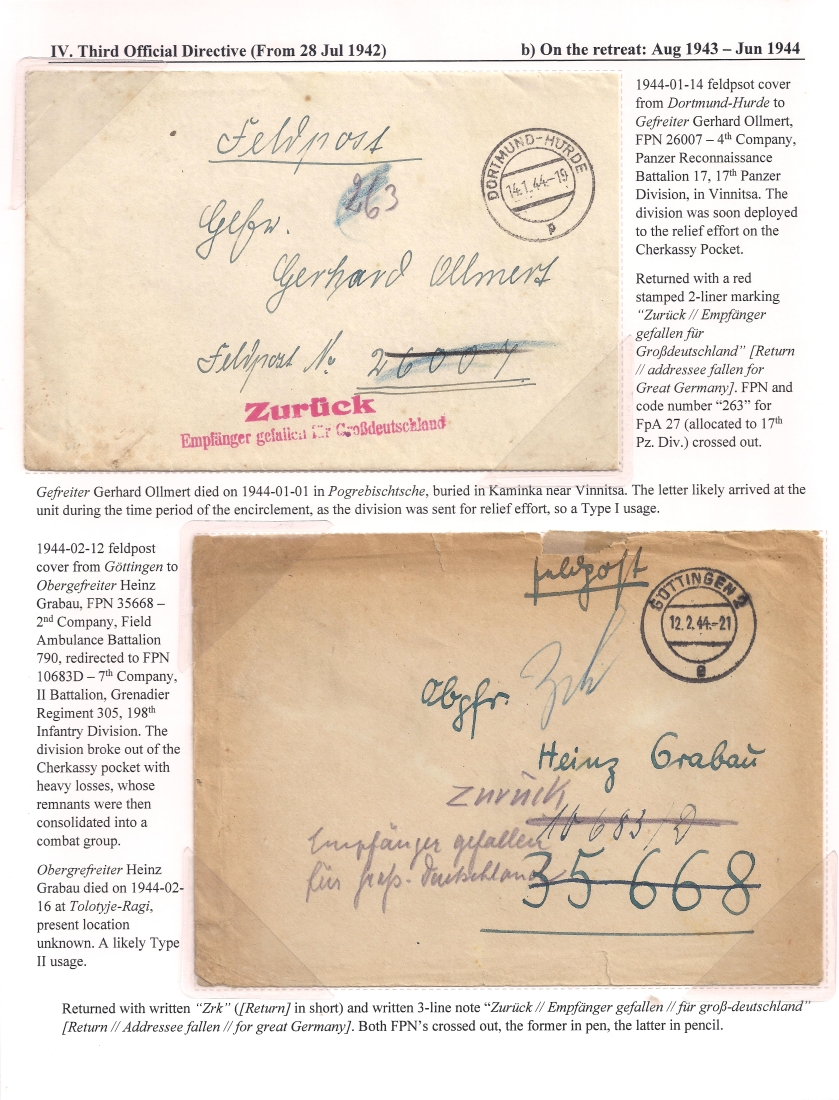 IV. Third Official Directive (From 28 Jul 1942)
b) On the retreat: Aug 1943 – Jun 1944
Feldpost
263
DORTMUND-HÜRDE
14.1.44.-19
p
Gefr.
Gerhard Ollmert
Feldpost No 26007
Zurück
Empfänger gefallen für Großdeutschland
1944-01-14 feldpsot cover
from Dortmund-Hurde to
Gefreiter Gerhard Ollmert,
FPN 26007 – 4th Company,
Panzer Reconnaissance
Battalion 17, 17th Panzer
Division, in Vinnitsa. The
division was soon deployed
to the relief effort on the
Cherkassy Pocket.
Returned with a red
stamped 2-liner marking
“Zurück // Empfänger
gefallen für
Großdeutschland” [Return
// addressee fallen for
Great Germany]. FPN and
code number “263” for
FpA 27 (allocated to 17th
Pz. Div.) crossed out.
Gefreiter Gerhard Ollmert died on 1944-01-01 in Pogrebischtsche, buried in Kaminka near Vinnitsa. The letter likely arrived at the
unit during the time period of the encirclement, as the division was sent for relief effort, so a Type I usage.
1944-02-12 feldpost
cover from Göttingen to
Obergefreiter Heinz
Grabau, FPN 35668 –
2nd Company, Field
Ambulance Battalion
790, redirected to FPN
10683D – 7th Company,
II Battalion, Grenadier
Regiment 305, 198th
Infantry Division. The
division broke out of the
Cherkassy pocket with
heavy losses, whose
remnants were then
consolidated into a
combat group.
Obergrefreiter Heinz
Grabau died on 1944-02-
16 at Tolotyje-Ragi,
present location
unknown. A likely Type
II usage.
Feldpost
GÖTTINGEN 2
12.2.44.-21
e
Zrk
Obgfr.
Heinz Grabau
Zurück
10683/D
Empfänger gefallen
für groß-deutschland
35668
Returned with written “Zrk” ([Return] in short) and written 3-line note “Zurück // Empfänger gefallen // für groß-deutschland”
[Return // Addressee fallen // for great Germany]. Both FPN’s crossed out, the former in pen, the latter in pencil.